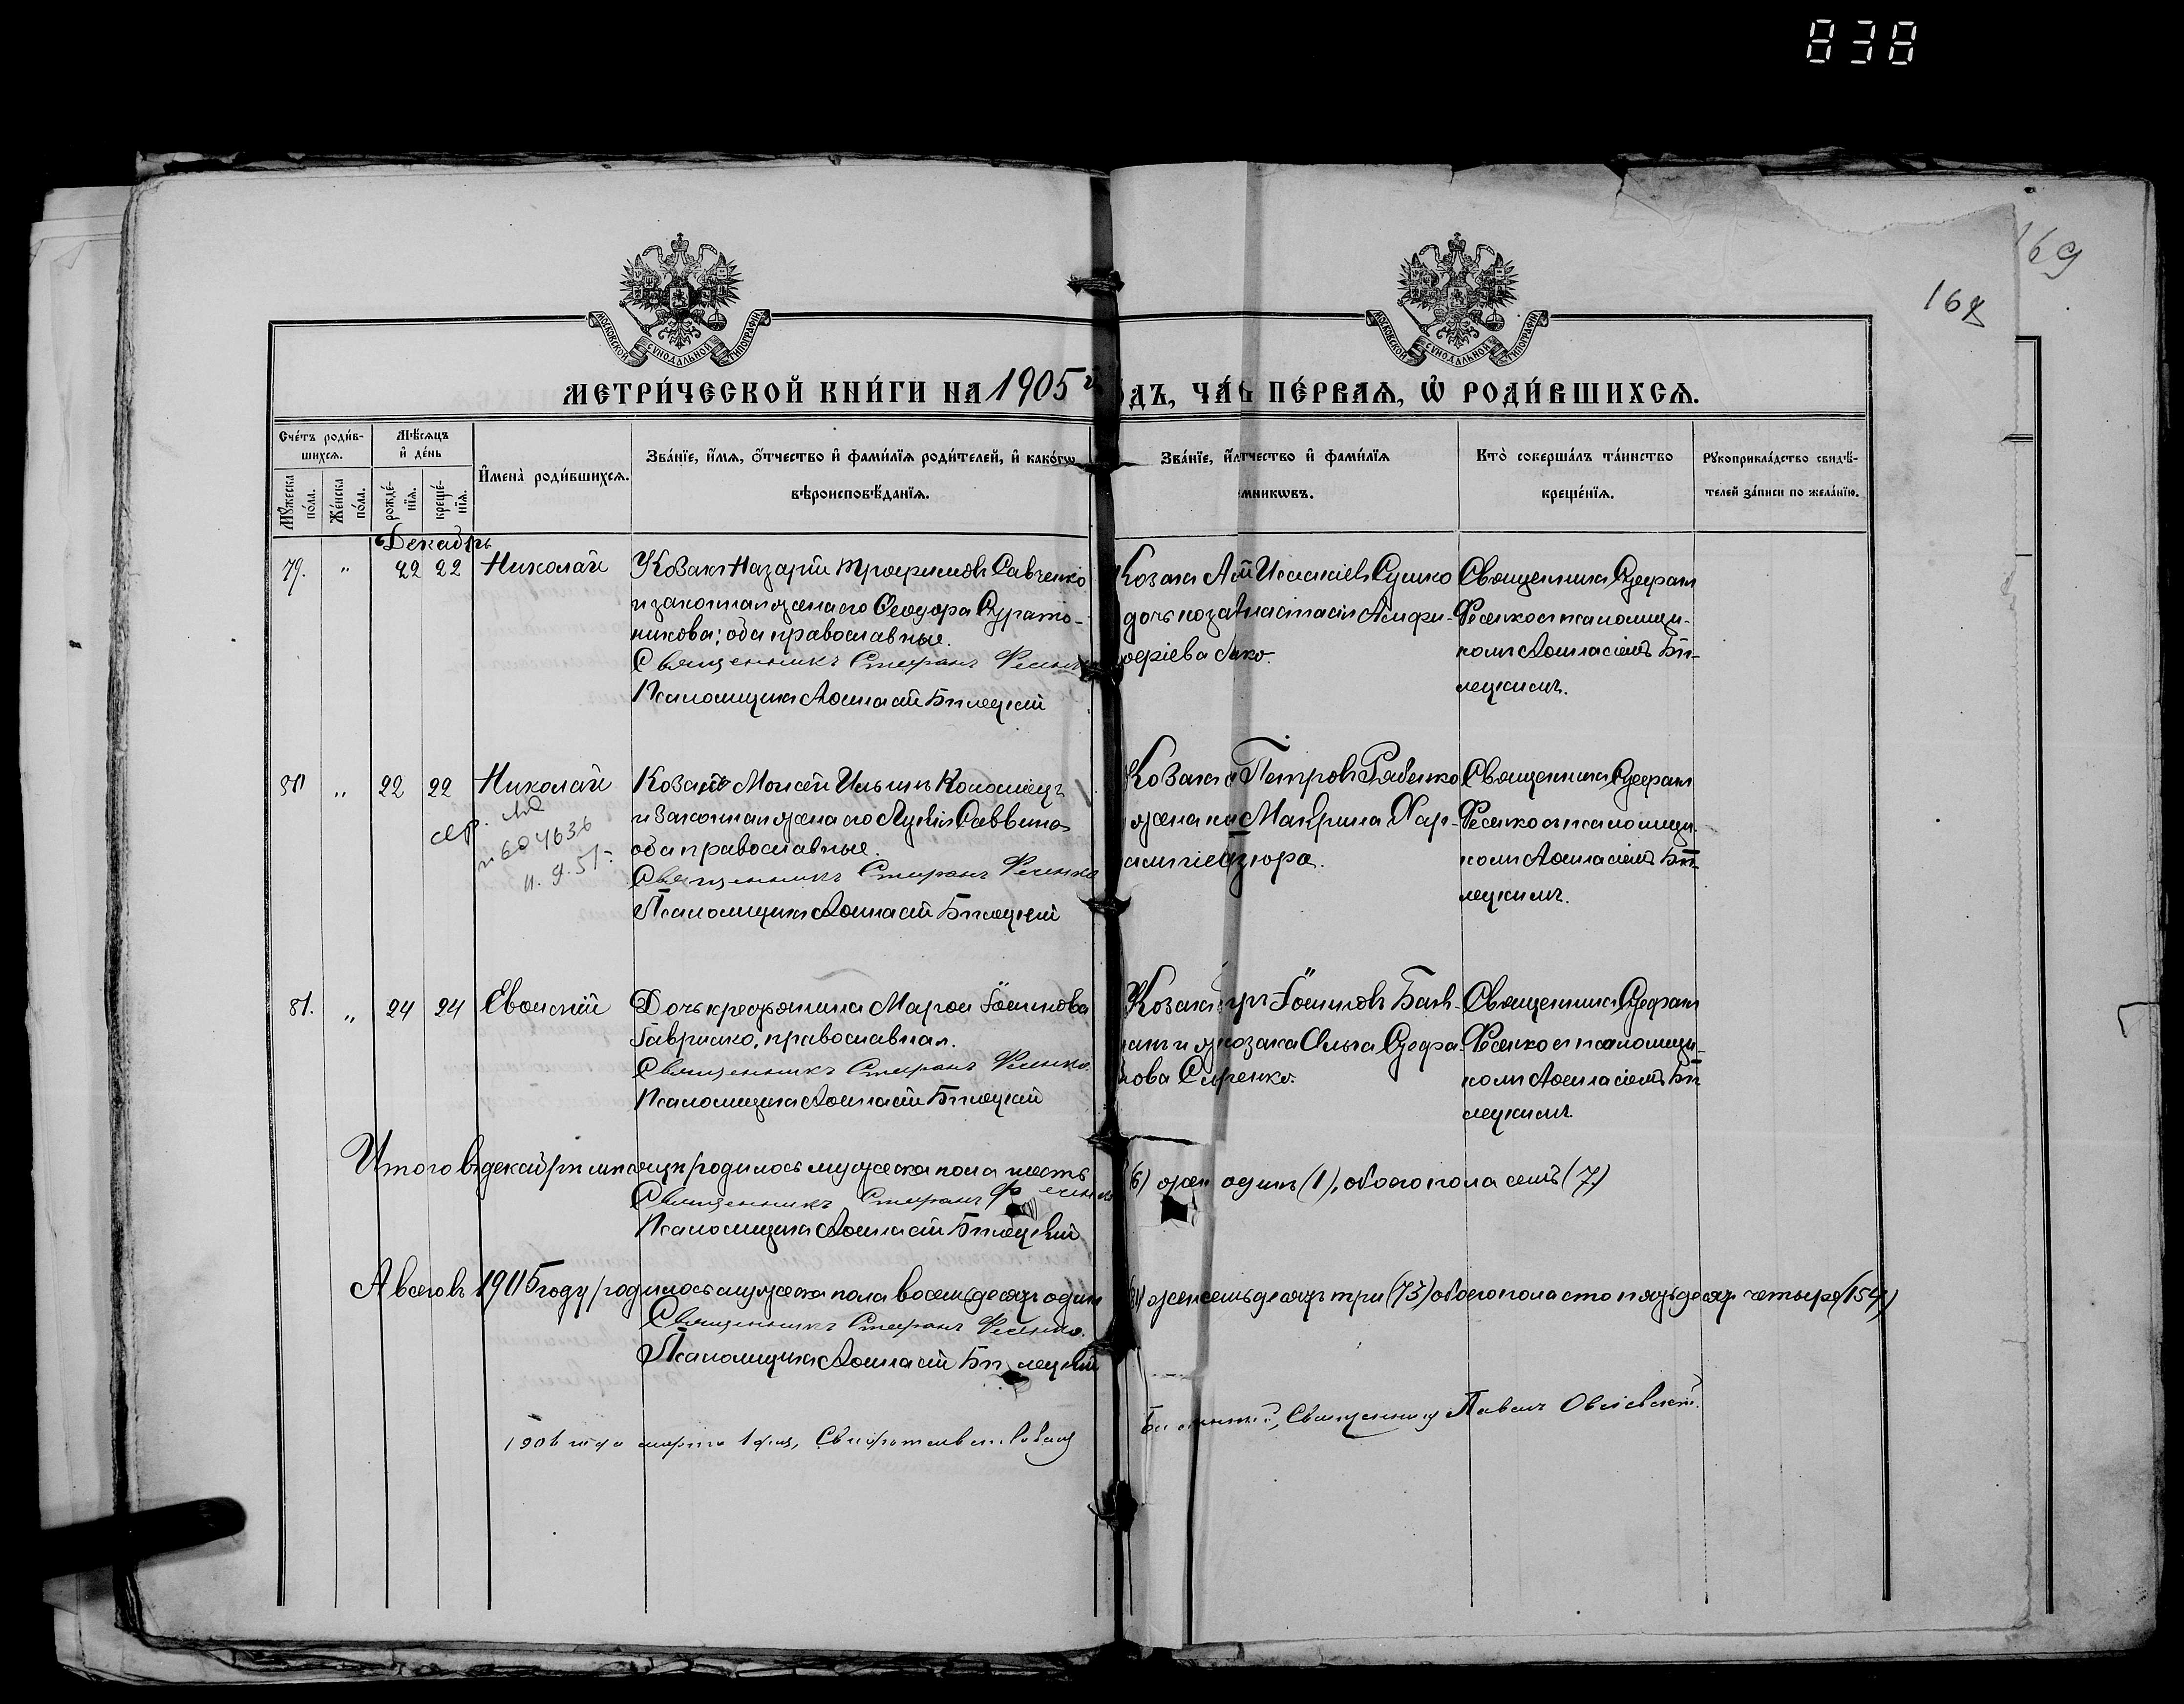 838
169
МОСКОВСКОЙ СѴНОДАЛЬНОЙ ТИПОГРАФІИ
МОСКОВСКОЙ СѴНОДАЛЬНОЙ ТИПОГРАФІИ
МЕТРИ́ЧЕСКОЙ КНИ́ГИ НА 1905 й
ДЪ, ЧА́ ПЕ́РВАѦ, Ѡ҆ РОДИ́ВШИХСѦ.
Сче́тъ роди́в-
шихсѧ.
Мꙋ́жеска по́ла.
Же́нска по́ла.
Мѣ́сѧцъ и҆ де́нь
рожде́-
нїѧ.
креще́-
нїѧ.
И҆мена̀ роди́вшихсѧ.
Зва́нїе, и҆́мѧ, ѻ҆́тчество и҆ фами́лїѧ роди́телей, и҆ како́гѡ
вѣроисповѣ́данїѧ.
Зва́нїе, и҆́ тчество и҆ фами́лїѧ
мникѡвъ.
Кто̀ соверша́лъ та́инство
креще́нїѧ.
Рꙋкоприкла́дство свидѣ́-
телей за́писи по жела́нїю.
Декабрь
79. " 22 22 Николай
Козакъ Назарій Трофимовъ Савченко
и законная жена его Ѳеодора
никова; оба православные.
Священникъ Стефанъ Фесенко
Псаломщикъ Аѳанасій Билецкій
Козакъ Сушко
дочь коза Анфи-
Священникъ Стефанъ
Фесенко съ псаломщи-
комъ Аѳанасіемъ Би-
лецкимъ.
80 " 22 22 Николай
604636
Козакъ Моисей Ильинъ Коломіецъ
и законная жена его Саввина
оба православные.
Священникъ Стефанъ Фесенко
Псаломщикъ Аѳанасій Билецкій
Козакъ Петровъ Рябенко
жена Макрина Хар-
Священникъ Стефанъ
Фесенко съ псаломщи-
комъ Аѳанасіемъ Би-
лецкимъ.
81. " 24 24 Евгеній
Дочь крестьянина Марѳа
Гавришко, православная.
Священникъ Стефанъ Фесенко.
Псаломщикъ Аѳанасій Билецкій
Козакъ
козака Ольга Стефа-
нова
Священникъ Стефанъ
Фесенко съ псаломщи-
комъ Аѳанасіемъ Би
лецкимъ.
Итого въ декабрѣ мѣсяцѣ родилось мужеска пола шесть
(6) жен одинъ (1), обоего пола семь (7)
Священникъ Стефанъ Фесенко
Псаломщикъ Аѳанасій Билецкій
А всего въ 1905 году родилось мужеска пола восемьдесятъ одинъ
(81) жен семьдесятъ три (73) обоего пола сто пятьдесят четыре (154)
Священникъ Стефанъ Фесенко.
Псаломщикъ Аѳанасій Билецкій
1906 года марта 1 дня, Свидѣтельствовалъ
Священникъ Павелъ